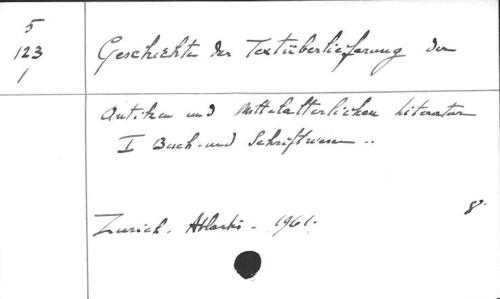 5
123
1
Geschichte der Textüberlieferung der
antiken und Mittelalterlichen Literatur
I Buch- und Schriftwesen ..
Zurich. Atlantis - 1961.
8°